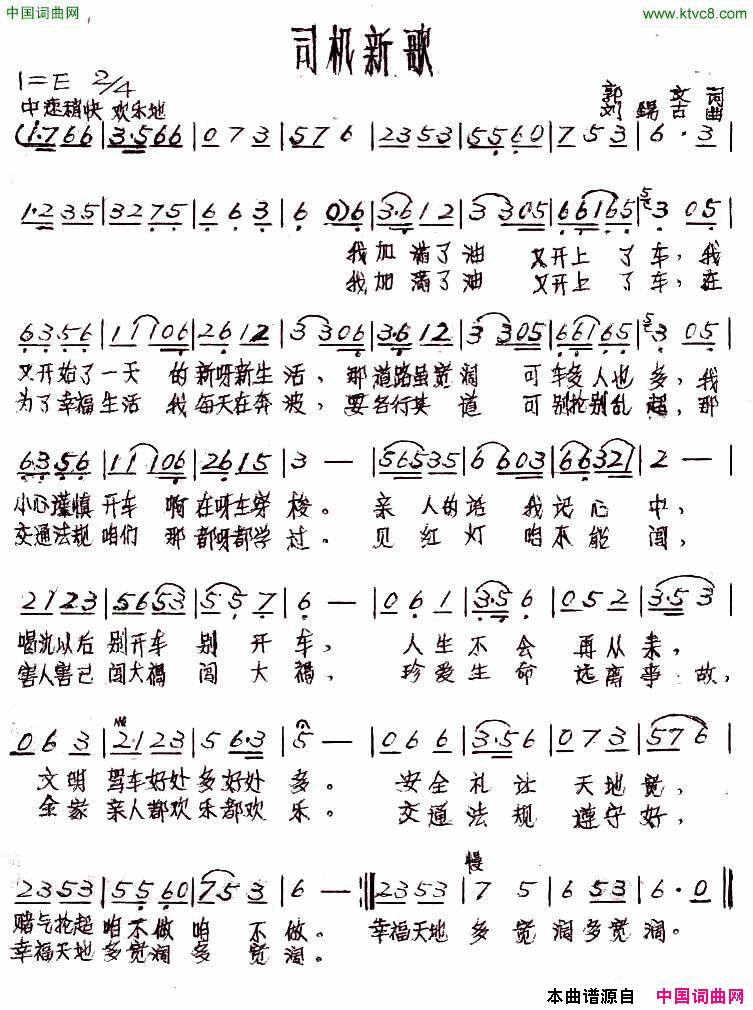 中国词曲网
www.ktvc8.com
司机新歌
1=E 2/4
中速稍快 欢乐地
郭文词
刘锡古曲
(1·766 | 3·566 | 073 | 576 | 2353 | 5560 | 753 | 6·3 |
1·235 | 3275 | 663 | 6 0)6 | 3·612 | 3 305 | 66165 | 3 05 |
我加满了油 又开上了车，我
我加满了油 又开上了车，在
6356 | 11106 | 2612 | 3306 | 3·612 | 3 305 | 66165 | 3 05 |
又开始了一天 的新呀新生活，那道路虽宽阔 可车多人也多，我
为了幸福生活 我每天在奔波，要各行其道 可别抢别乱超，那
6·356 | 11106 | 2615 | 3 — | 56535 | 6 603 | 66321 | 2 — |
小心谨慎开车 啊在呀在穿梭。亲人的话 我记心中，
交通法规咱们 那都呀都学过。见红灯 咱不能闯，
2123 | 5653 | 5 5 7 | 6 — | 061 | 3·56 | 052 | 3·53 |
喝沈以后别开车 别开车，人生不会再从来，
害人害己闯大祸 闯大祸，珍爱生命远离事故，
063 | 2·123 | 5 6·3 | 5 — | 066 | 3·56 | 073 | 576 |
文明驾车好处多好处多。安全礼让天地宽，
全家亲人都欢乐都欢乐。交通法规遵守好，
慢
2353 | 5560 | 753 | 6 — :‖ 2353 | 7 5 | 6 53 | 6·0 ‖
赌气抢超咱不做咱不做。幸福天地多宽阔多宽阔。
幸福天地多宽阔多宽阔。
本曲谱源自 中国词曲网